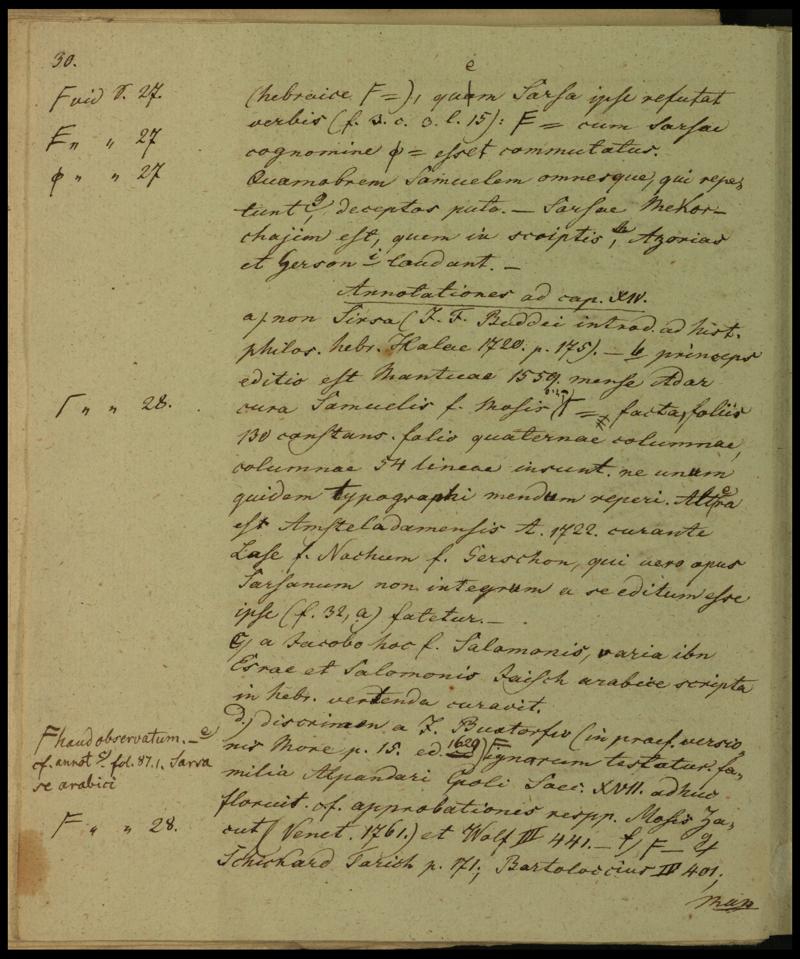 30.
F vid S. 27.
F „ „ 27
φ „ „ 27
(hebraice F =), quem Sarsa ipse refutat
verbis (f. 3. c. 3. l. 15): F = cum Sarsae
cognomine φ = esset commutatus.
Quamobrem Samuelem omnesque, qui repe,
tunt g, deceptos puto. — Sarsae Mekor-
chajim est, quem in scriptis h, Azorias
et Gerson i laudant. —
Annotationes ad cap. XIV.
a, non Sirsa (J. F. Buddei introd. ad hist.
philos. hebr. Halae 1720. p. 175). — b princeps
editio est Mantuae 1559. mense Adar
Γ „ „ 28.
cura Samuelis f. Mosis Γ = facta, foliis
130 constans. folio quaternae columnae,
columnae 54 lineae insunt. ne unum
quidem typographi mendum reperi. Altera
est Amsteladamensis A. 1722. curante
Lase f. Nachum f. Gerschon, qui vero opus
Sarsanum non integrum a se editum esse
ipse (f. 32, a) fatetur. —
C, a Jacobo hoc f. Salomonis, varia ibn
Esrae et Salomonis Jaisch arabice scripta
in hebr. vertenda curavit.
d,) discrimen a J. Buxtorfio (in praef. versio,
nis More p. 15. ed. 1629) F ignarum testatur. fa,
F haud observatum. — e)
cf. annot fol. 87. 1. Sarsa
se arabici
milia Alpandari Cpoli Saec. XVII. adhuc
floruit. cf. approbationes respp. Mosis Za,
F „ „ 28.
cut (Venet. 1761.) et Wolf III 441. — f, F —
Schickard Tarich p. 171; Bartoloccius IV 401;